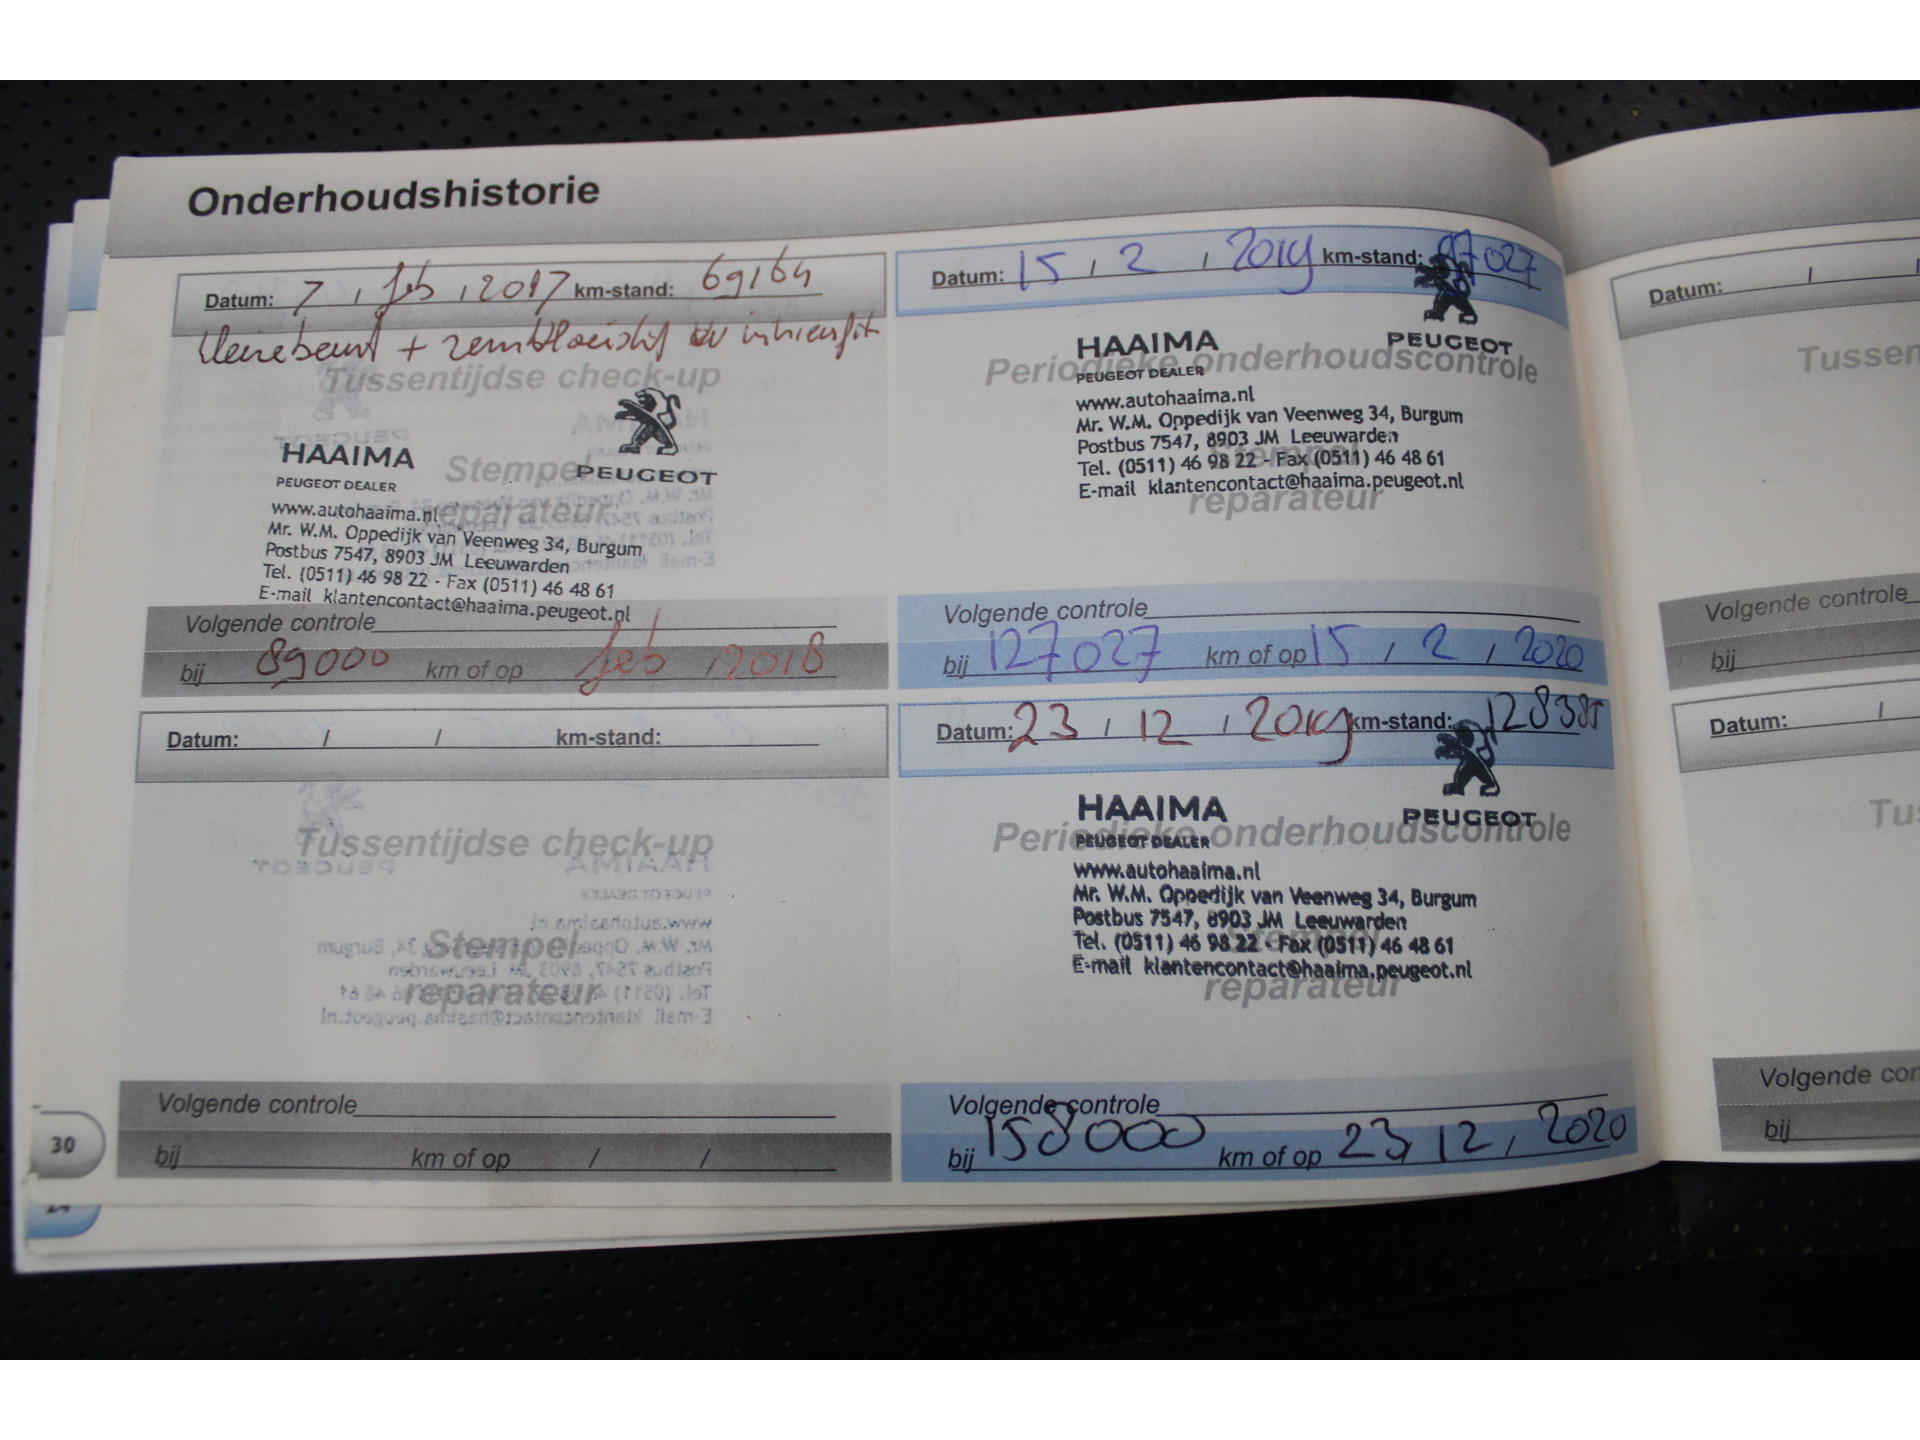 Onderhoudshistorie
Datum: 7 / feb / 2017 km-stand: 69164
+
Tussentijdse check-up
HAAIMA
PEUGEOT DEALER
PEUGEOT
Stempel
reparateur
www.autohaaima.nl
Mr. W.M. Oppedijk van Veenweg 34, Burgum
Postbus 7547, 8903 JM Leeuwarden
Tel. (0511) 46 98 22 - Fax (0511) 46 48 61
E-mail klantencontact@haaima.peugeot.nl
Volgende controle
bij 89000 km of op feb / 2018
Datum: / / km-stand:
Tussentijdse check-up
Stempel
reparateur
Volgende controle
bij km of op / /
30
24
Datum: 15 / 2 / 2019 km-stand: 97027
HAAIMA
PEUGEOT DEALER
PEUGEOT
Periodieke onderhoudscontrole
www.autohaaima.nl
Mr. W.M. Oppedijk van Veenweg 34, Burgum
Postbus 7547, 8903 JM Leeuwarden
Tel. (0511) 46 98 22 - Fax (0511) 46 48 61
E-mail klantencontact@haaima.peugeot.nl
Stempel
reparateur
Volgende controle
bij 127027 km of op 15 / 2 / 2020
Datum: 23 / 12 / 2019 km-stand: 128385
HAAIMA
PEUGEOT DEALER
PEUGEOT
Periodieke onderhoudscontrole
www.autohaaima.nl
Mr. W.M. Oppedijk van Veenweg 34, Burgum
Postbus 7547, 8903 JM Leeuwarden
Tel. (0511) 46 98 22 - Fax (0511) 46 48 61
E-mail klantencontact@haaima.peugeot.nl
Stempel
reparateur
Volgende controle
bij 158000 km of op 23 / 12 / 2020
Datum: / /
Tussen
Volgende controle
bij
Datum: /
Tus
Volgende con
bij